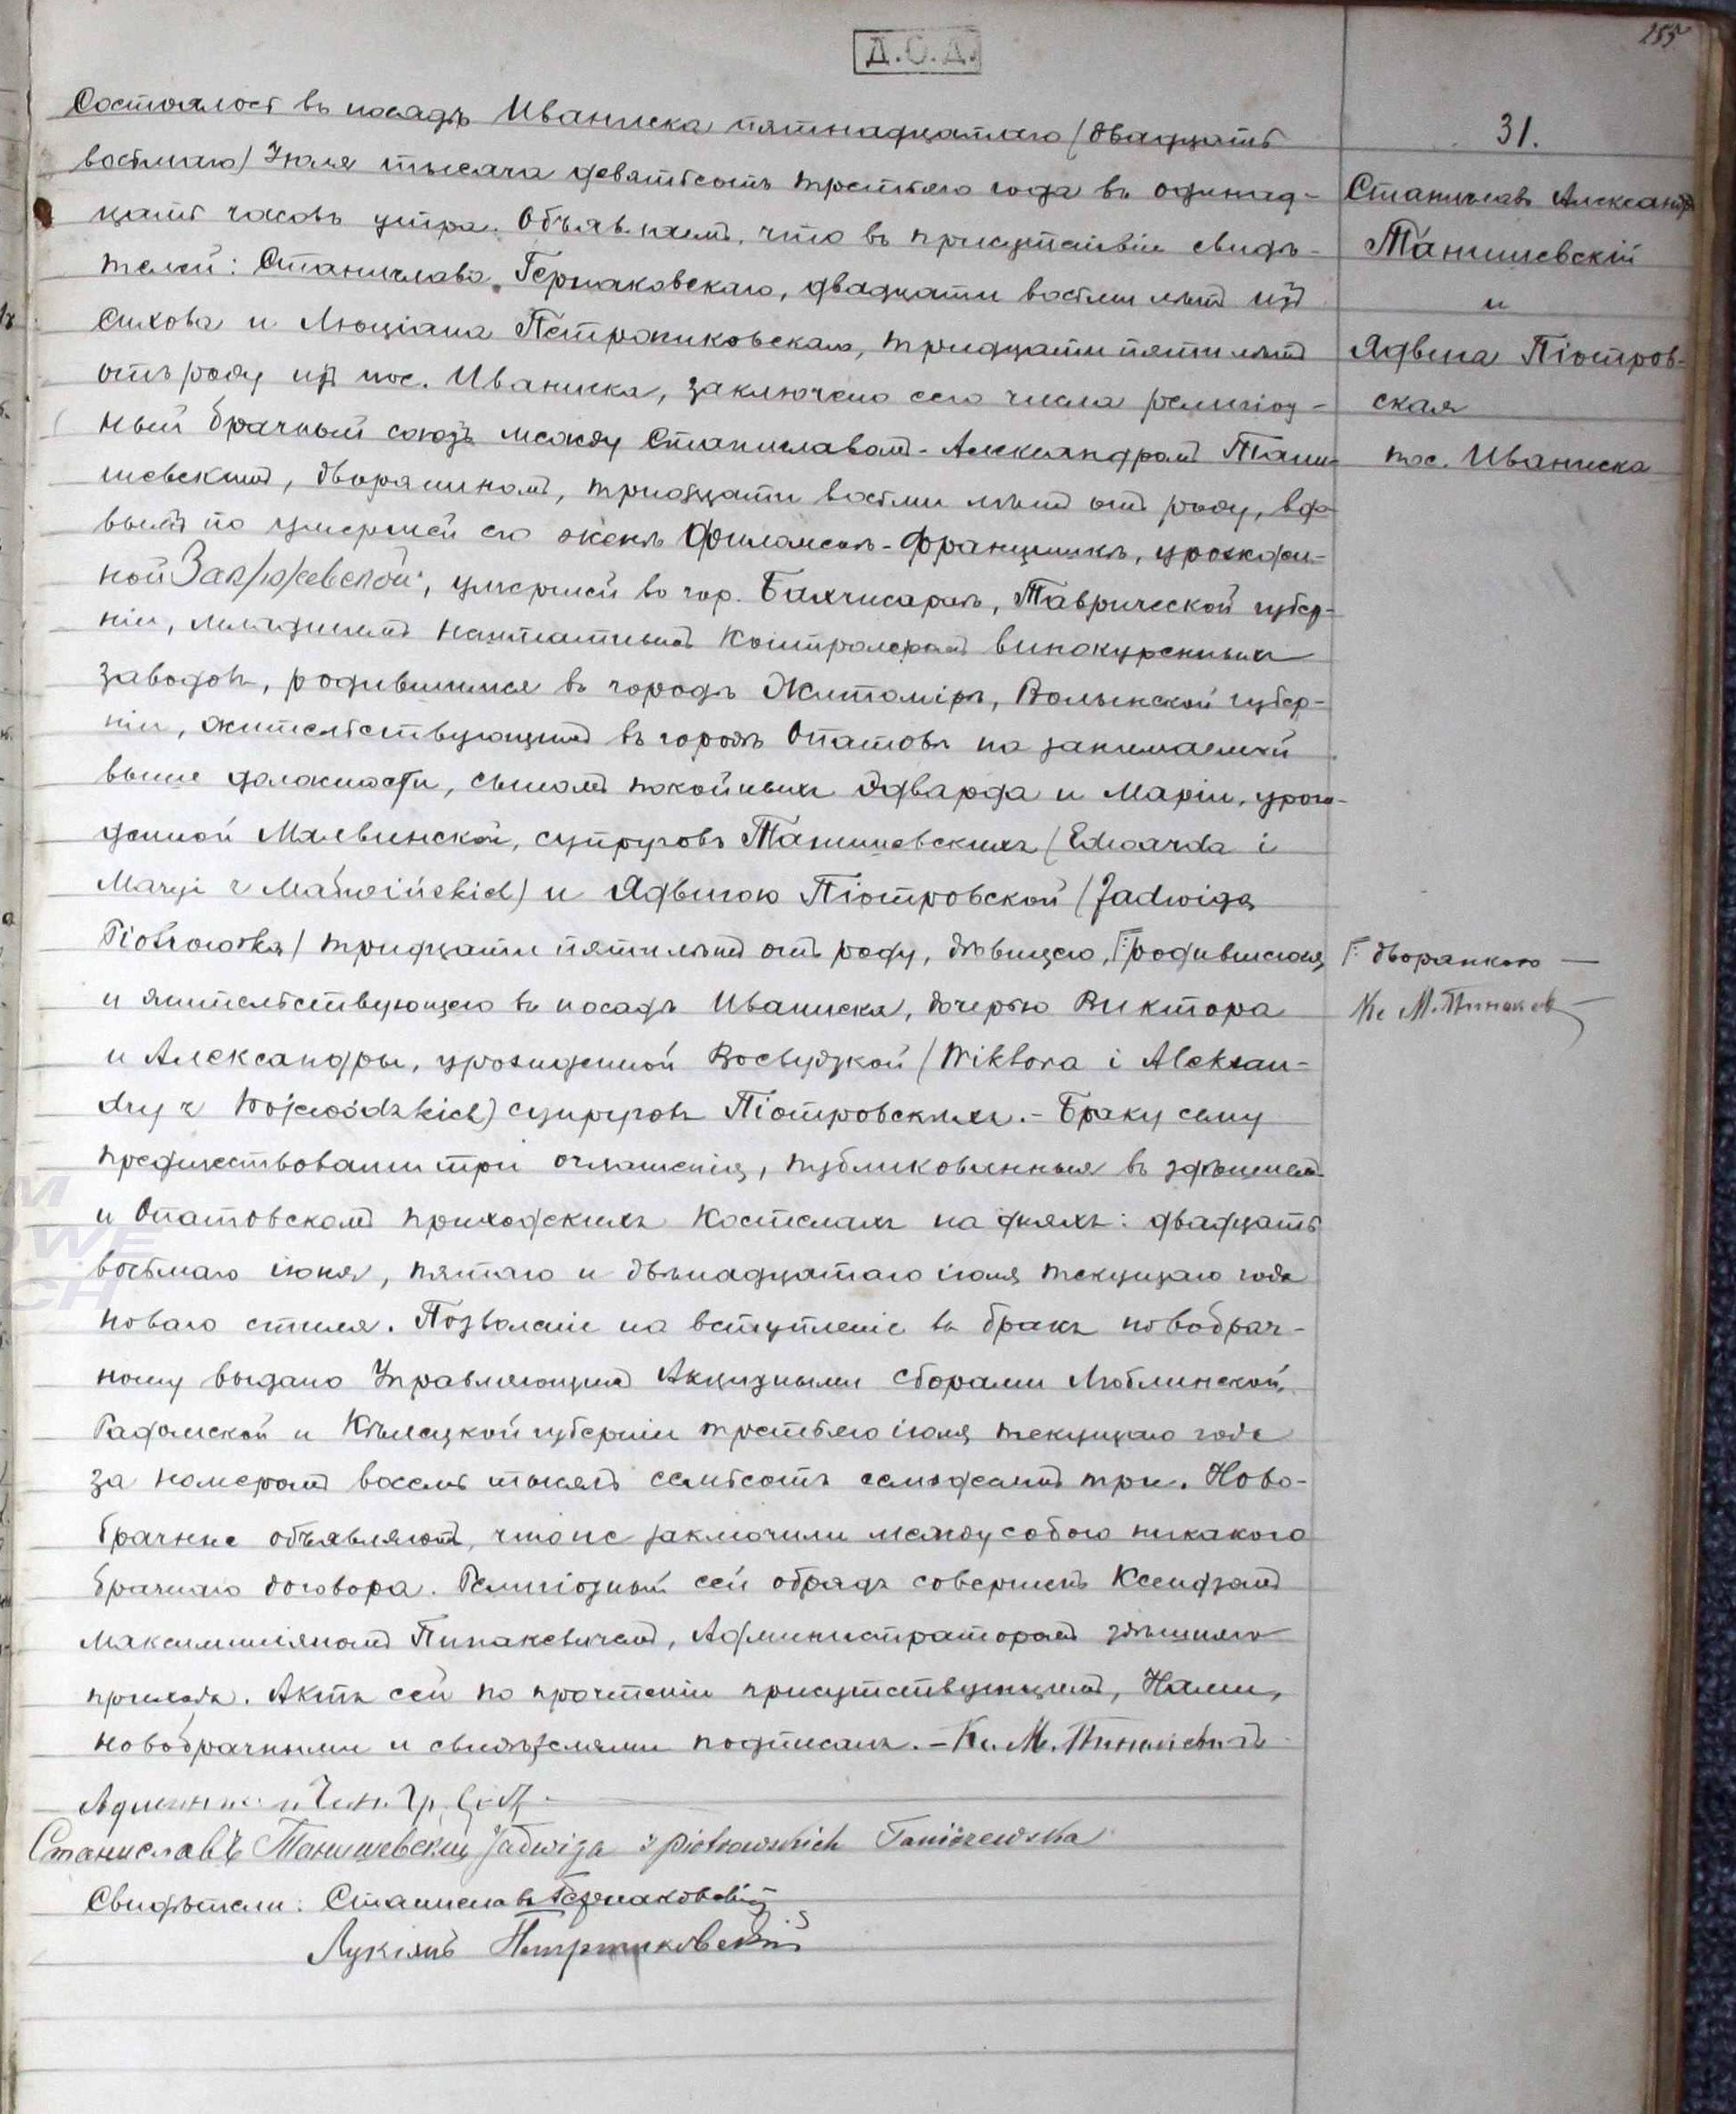 155
Д.О.Д.
31.
Станиславъ Александръ
Танишевскій
и
Ядвига Піотров-
ская
пос. Иваниска
Состоялось въ посадѣ Иваниска пятнадцатаго (двадцать
восьмаго) Іюля тысяча девятьсотъ третьяго года въ одинад-
цать часовъ утра. Объявляемъ, что въ присутствіи свидѣ-
телей: Станислава Гермаковскаго, двадцати восьми лѣтъ изъ
и Люціана Петрониковскаго, тридцати пяти лѣтъ
отъ роду изъ пос. Иваниска, заключено сего числа религіоз-
ный брачный союзъ между Станиславомъ-Александромъ Тани-
шевскимъ, дворяниномъ, тридцати восьми лѣтъ отъ роду, вдо-
вымъ по умершей его женѣ Филоменѣ-Францишкѣ, урожден-
ной умершей въ гор. Бахчисараѣ, Таврической губер-
ніи, младшимъ нештатнымъ Контролеромъ винокуренныхъ
заводовъ, родившимся въ городѣ Житомірѣ, Волынской губер-
ніи, жительствующимъ въ городѣ Опатовѣ на занимаемой
выше должности, сыномъ покойныхъ Эдварда и Маріи, урож-
денной Малвинской, супруговъ Танишевскихъ (Edwarda i
Maryi z Malwińskich) и Ядвигою Піотровской (Jadwigą
Piotrowską) тридцати пяти лѣтъ отъ роду, дѣвицею, родившеюся
Г: дворянкою —
и жительствующею въ посадѣ Иваниска, дочерью Виктора
Кс М. Пинакев
и Александры, урожденной Воевудзкой (Wiktora i Aleksan-
dry z Wojewódzkich) супруговъ Піотровскихъ. - Браку сему
предшествовали три оглашенія, публикованныя въ здѣшнемъ
и Опатовскомъ приходскихъ Костелахъ на дняхъ: двадцать
восьмаго іюня, пятаго и двѣнадцатаго іюля текущаго года
новаго стиля. Позволеніе на вступленіе въ бракъ новобрач-
ному выдано Управляющимъ Акцизными сборами Люблинской,
Радомской и Кѣлецкой губерніи третьяго іюля текущаго года
за номеромъ восемь тысячъ семьсотъ семьдесятъ три. Ново-
брачные объявляютъ, что не заключили между собою никакого
брачнаго договора. Религіозный сей обрядъ совершенъ Ксендзомъ
Максимиліяномъ Пинакевичемъ, Администраторомъ здѣшняго
прихода. Актъ сей по прочтеніи присутствующимъ, Нами,
новобрачными и свидѣтелями подписанъ. - Кс. М. Пинакевичъ
Админис. и Чин. Гр. С. П.
Станиславъ Танишевскій Jadwiga z Piotrowskich Taniszewska
Свидѣтели: Станиславъ Гермаковскій